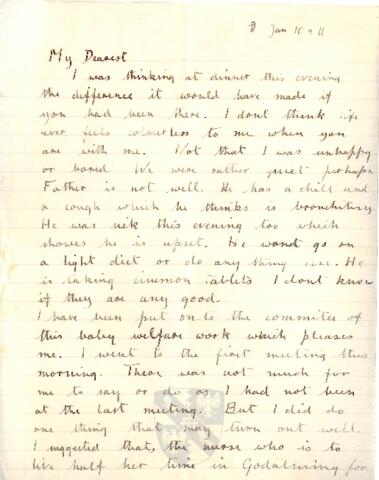 Jan 10 11
My Dearest
I was thinking at dinner this evening
the difference it would have made if
you had been there. I dont think life
ever feels colourless to me when you
are with me. Not that I was unhappy
or bored. We were rather quiet perhaps.
Father is not well. He has a chill and
a cough which he thinks is bronchitisy
He was sick this evening too which
shows he is upset. He wont go on
a light diet or do any thing else. He
is taking cinemon tablets I dont know
if they are any good.
I have been put on to the commitee of
this baby welfare work which pleases
me. I went to the first meeting this
morning. There was not much for
me to say or do as I had not been
at the last meeting. But I did do
one thing that may turn out well.
I suggested that, the nurse who is to
live half her time in Godalming for